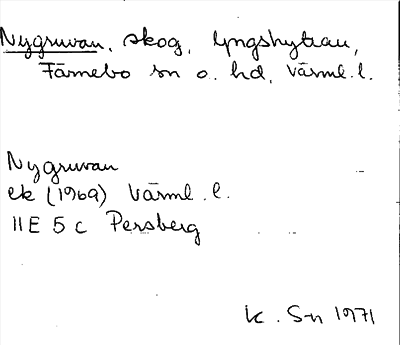 Nygruvan, skog, Lyngshyttan,
Färnebo sn o. hd, Värml. l.
Nygruvan
ek (1969) Värml. l.
11E 5 c Persberg
K. S-n 1971